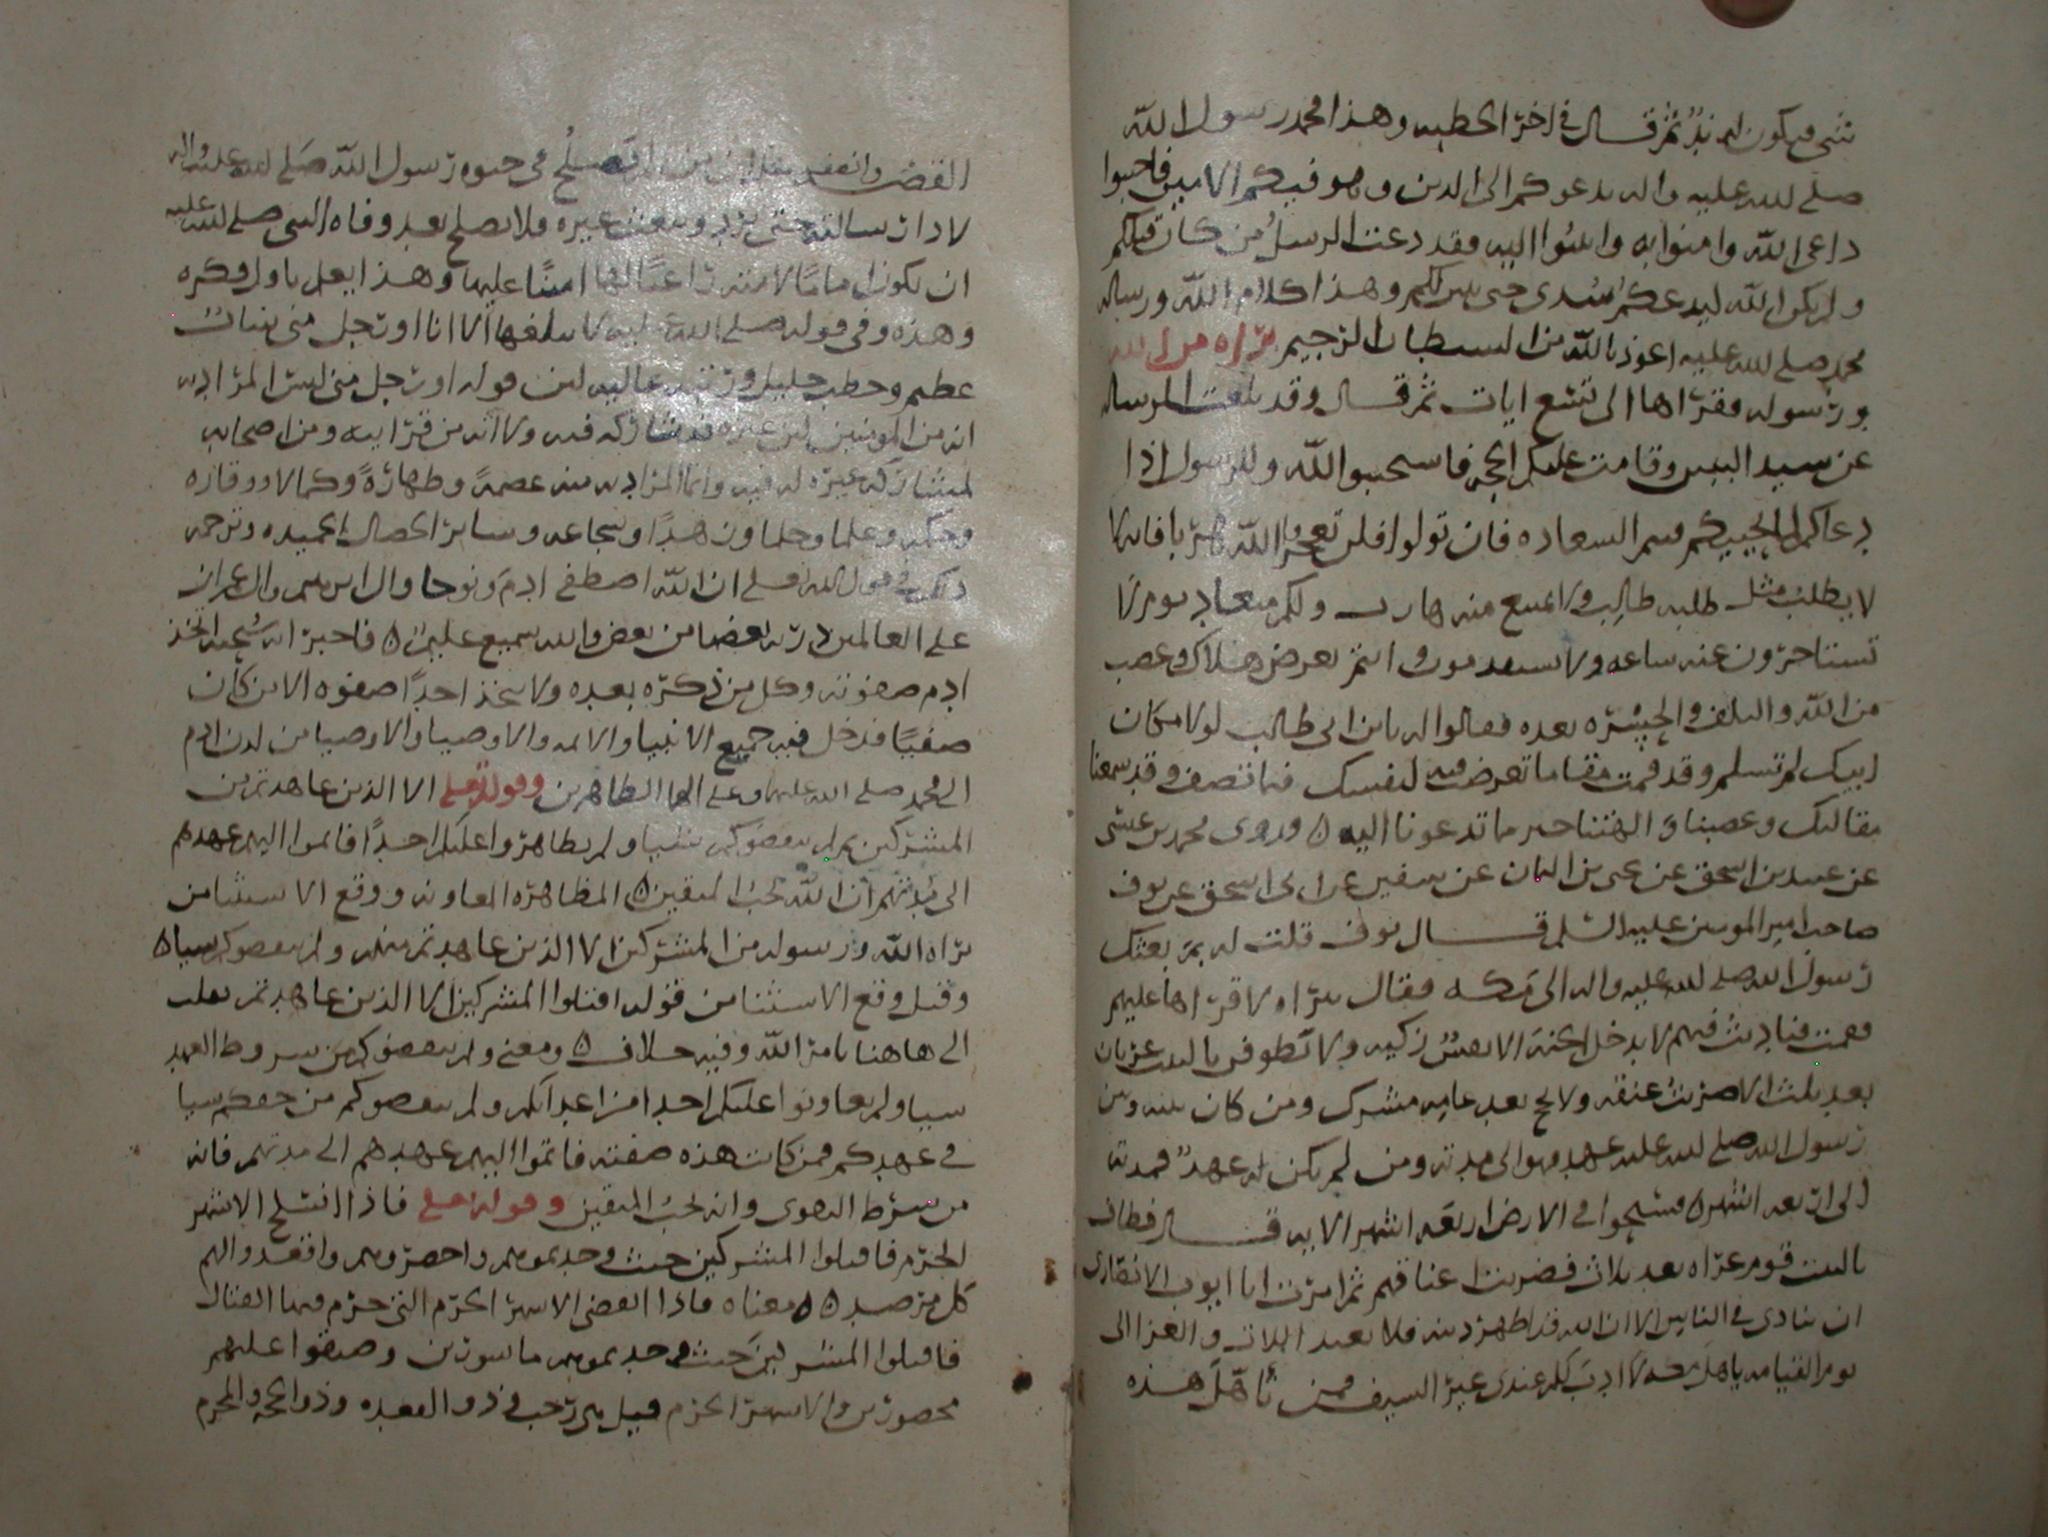 شي فيكون له ند ثم قال في اخر الخطبه وهذا محمد رسول الله
صلى الله عليه واله يدعوكم الى الدين وهو فيكم الامين فاجيبوا
داعي الله وامنوا به واليه فقد دعت الرسل من كان قبلكم
ولم يكن الله ليدعكم سدى حتى وهذا كلام الله ورساله
محمد صلى الله عليه اعوذ بالله من الشيطان الرجيم براه من الله
ورسوله فقراها الى تسع ايات ثم قال وقد بلغت الرساله
عن سيد وقامت عليكم الحجه فاستجيبوا لله وللرسول اذا
دعاكم لما يحييكم السعاده فان تولوا فلن تعجزوا الله هربا فانه لا
لا يطلب مثل طلبه طالب ولا امتنع منه هارب ولكم ميعاد يوم لا
تستاخرون عنه ساعه ولا تستقدمون وانتم بعرض هلاك وغضب
من الله والتلف والحسره بعده فقالوا له يابن ابي طالب لولا مكان
ابيك لم تسلم وقد قمت مقاما تعرض فيه لنفسك فما تنصف وقد سمعنا
مقالتك وعصينا والهتنا خير ما تدعونا اليه ٥ وروى محمد بن عيسى
عن عبيد بن اسحق عن يحيى بن اليمان عن سفين عن ابي اسحق عن نوف
صاحب امير المومنين عليه السلم قال نوف قلت له بم بعثك
رسول الله صلى الله عليه واله الى مكه فقال ببراه لا قراها عليهم
فقمت فناديت فيهم لا يدخل الجنة الا نفس زكيه ولا يطوفن بالبيت عريان
بعد ثلث الا ضربت عنقه ولا يحج بعد عامه مشرك ومن كان بينه وبين
رسول الله صلى الله عليه عهد فهو الى مدته ومن لم يكن له عهد فمدته
الى اربعه اشهر ٥ فسيحوا في الارض اربعه اشهر الايه قال فطاف
بالبيت قوم عراه بعد ثلاث فضربت اعناقهم ثم امرت ابا ايوب الانصاري
ان ينادي في الناس الا ان الله قد اظهر دينه فلا يعبد اللات والعزا الى
يوم القيامه يا اهل مكه لا ادب لكم عندي غير السيف فمن تامل هذه
القصه في حيوه رسول الله صلى الله عليه واله
لادا رسالته حتى يرد ويبعث غيره فلا يصلح بعد وفاه النبي صلى الله عليه
ان يكون اماما لامته راعيا لها امينا عليها وهذا يعلم باول فكره
وهذه وفي قوله صلى الله عليه لا يبلغها الا انا او رجل مني بيان
عظيم وخطب جليل ورتبه عاليه لان قوله او رجل مني ليس المراد به
انه من المومنين لان غيره قد شاركه فيه ولا انه من قرابته ومن اصحابه
لمشاركه غيره له فيه وانما المراد به منه عصمة وطهارة وكمالا ووقاره
وحكمه وعلما وحلما وزهدا وشجاعه وساير الخصال الحميده وترجمه
ذلك في قول الله تعلى ان الله اصطفى ادم ونوحا وال ابرهيم وال عمران
على العالمين ذريه بعضها من بعض والله سميع عليم ٥ فاخبر انه سبحنه اتخذ
ادم صفوته وكل من ذكره بعده ولا يتخذ احدا صفوه الا من كان
صفيا فدخل فيه جميع الانبيا والايمه والاوصيا والاوصيا من لدن ادم
الى محمد صلى الله عليه وعلى الهما الطاهرين وقوله تعلى الا الذين عاهدتم من
المشركين ثم لم ينقصوكم شيا ولم يظاهروا عليكم احدا فاتموا اليهم عهدهم
الى مدتهم ان الله يحب المتقين ٥ المظاهره المعاونه ووقع الاستثنا من
براه الله ورسوله من المشركين الا الذين عاهدتم منهم ولم ينقصوكم شيا ٥
وقيل وقع الاستثنا من قوله اقتلوا المشركين الا الذين عاهدتم
الى هاهنا بامر الله وفيه خلاف ٥ ومعنى ولم ينقصوكم من شروط العهد
شيا ولم يعاونوا عليكم احدا من اعدايكم ولم ينقصوكم من حقكم شيا
في عهدكم فمن كانت هذه صفته فاتموا اليهم عهدهم الى مدتهم فانه
من شرط التقوى وانه يحب المتقين وقوله تعلى فاذا انسلخ الاشهر
الحرم فاقتلوا المشركين حيث وجدتموهم واحصروهم واقعدوا لهم
كل مرصد ٥٥ معناه فاذا انقضى الاشهر الحرم التي حرم فيها القتال
فاقتلوا المشركين حيث وجدتموهم ماسورين وضيقوا عليهم
محصورين والاشهر الحرم قيل هي رجب وذو القعده وذو الحجه والمحرم